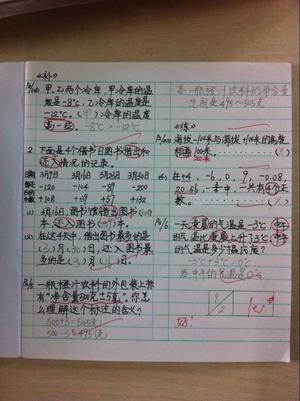 《补》
甲、乙两个冷库，甲冷库的温
度是-8℃，乙冷库的温度是
-12℃，(甲)冷库的温度
高一些。-8℃>-12℃
2. 下面是个借书日图书借出和
还入情况的记录。
3月7日 3月16日 3月23日 3月30日
-120 -104 -89 -200
+108 +39 +57 +132
(1) 3月16日，图书馆借出图书
本，还入图书
(2) 在这4天中，借出图书最多的是
(3)月(30)日，还入图书最
多的是(3)月
一瓶橙汁饮料的外包装上标
有"净含量500克±5克"。你怎
么理解这个标注的含义？
500+5=505(克)
500-5=495(克)
答一瓶橙汁饮料的净含量
范围是495～505克
《练》
海拔-100米与海拔+100米的高度
相差100米。
200米
4. 在+4、-6、0、9、-0.08、
中，一共有4个正
数。
一天凌晨的气温是-3℃，中午
的气温比凌晨上升了3℃，中午
的气温是多少摄氏度？
-3℃+3℃=0℃
答中午的气温是0℃